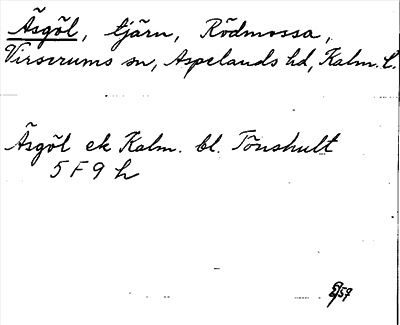 Åsgöl, tjärn, Rödmossa,
Virserums sn, Aspelands hd, Kalm. l.
Åsgöl ek Kalm. bl. Tönshult
5 F 9 h
57